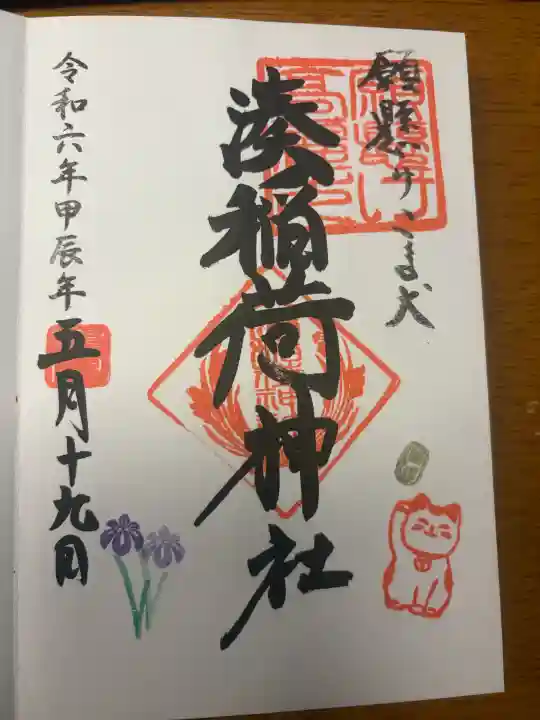 願懸けこま犬
湊稲荷神社
令和六年甲辰年五月十九日